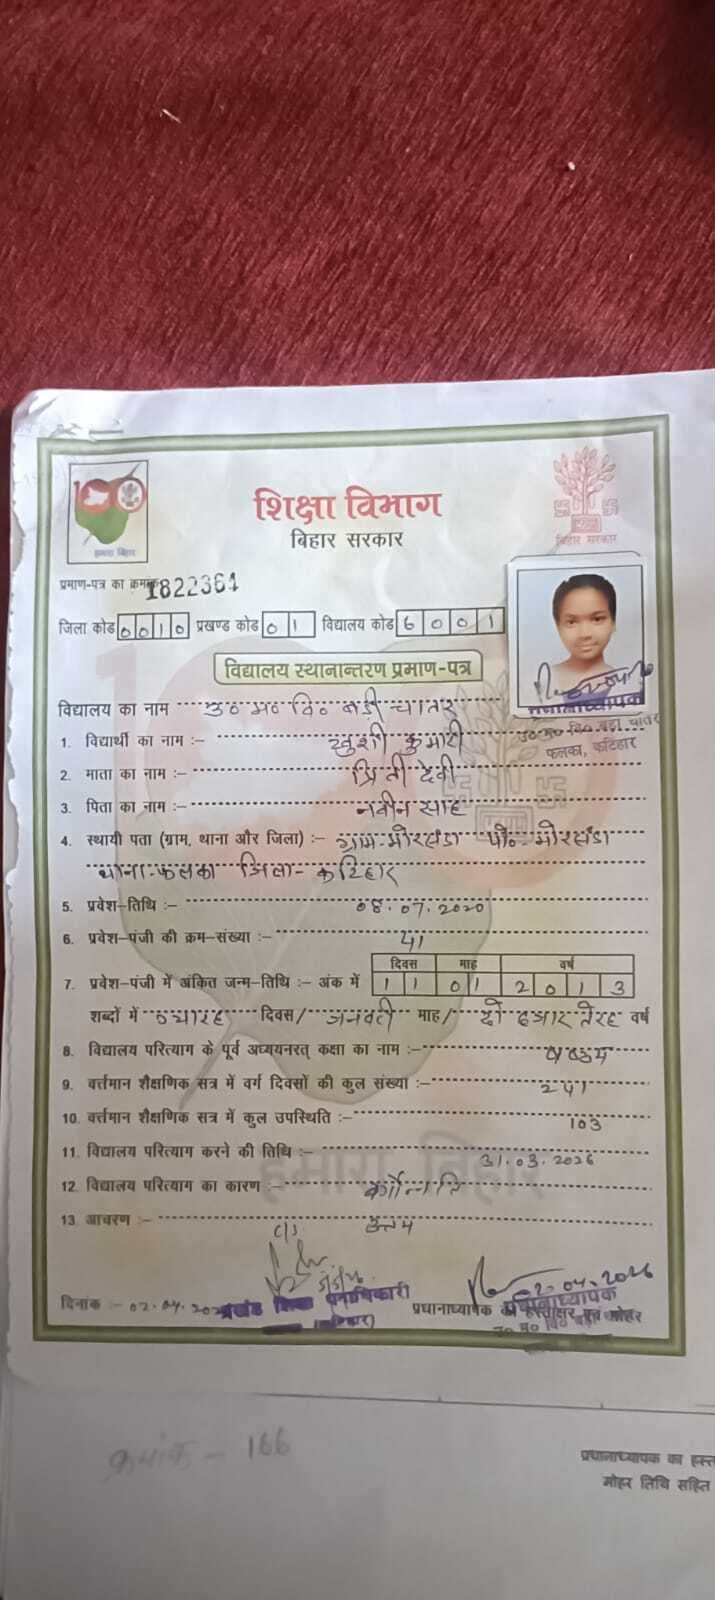 हमारा बिहार
शिक्षा विभाग
बिहार सरकार
बिहार सरकार
प्रमाण-पत्र का क्रमांक 1822364
जिला कोड 0010 प्रखण्ड कोड 01 विद्यालय कोड 6001
विद्यालय स्थानान्तरण प्रमाण-पत्र
प्रधानाध्यापक
उ० म० वि० बड़ी चातर
फलका, कटिहार
विद्यालय का नाम उ० म० वि० बड़ी चातर
1. विद्यार्थी का नाम :– खुशी कुमारी
2. माता का नाम :– प्रिती देवी
3. पिता का नाम :– नवीन साह
4. स्थायी पता (ग्राम, थाना और जिला) :– ग्राम-मोरसंडा पो०-मोरसंडा
थाना-फलका जिला-कटिहार
5. प्रवेश-तिथि :– 08.07.2020
6. प्रवेश-पंजी की क्रम-संख्या :– 41
दिवस माह वर्ष
7. प्रवेश-पंजी में अंकित जन्म-तिथि :– अंक में 11 01 2013
शब्दों में ग्यारह दिवस/ जनवरी माह/ दो हजार तेरह वर्ष
8. विद्यालय परित्याग के पूर्व अध्ययनरत् कक्षा का नाम :–
9. वर्त्तमान शैक्षणिक सत्र में वर्ग दिवसों की कुल संख्या :– 241
10. वर्त्तमान शैक्षणिक सत्र में कुल उपस्थिति :– 103
11. विद्यालय परित्याग करने की तिथि :– 31.03.2026
हमारा बिहार
12. विद्यालय परित्याग का कारण :–
13. आचरण :– उत्तम
c/s
02.04.2026
दिनांक :– 02.04. प्रखंड शिक्षा पदाधिकारी
प्रधानाध्यापक का हस्ताक्षर एवं मोहर
प्रधानाध्यापक
क्रमांक - 166
प्रधानाध्यापक का हस्त
मोहर तिथि सहित